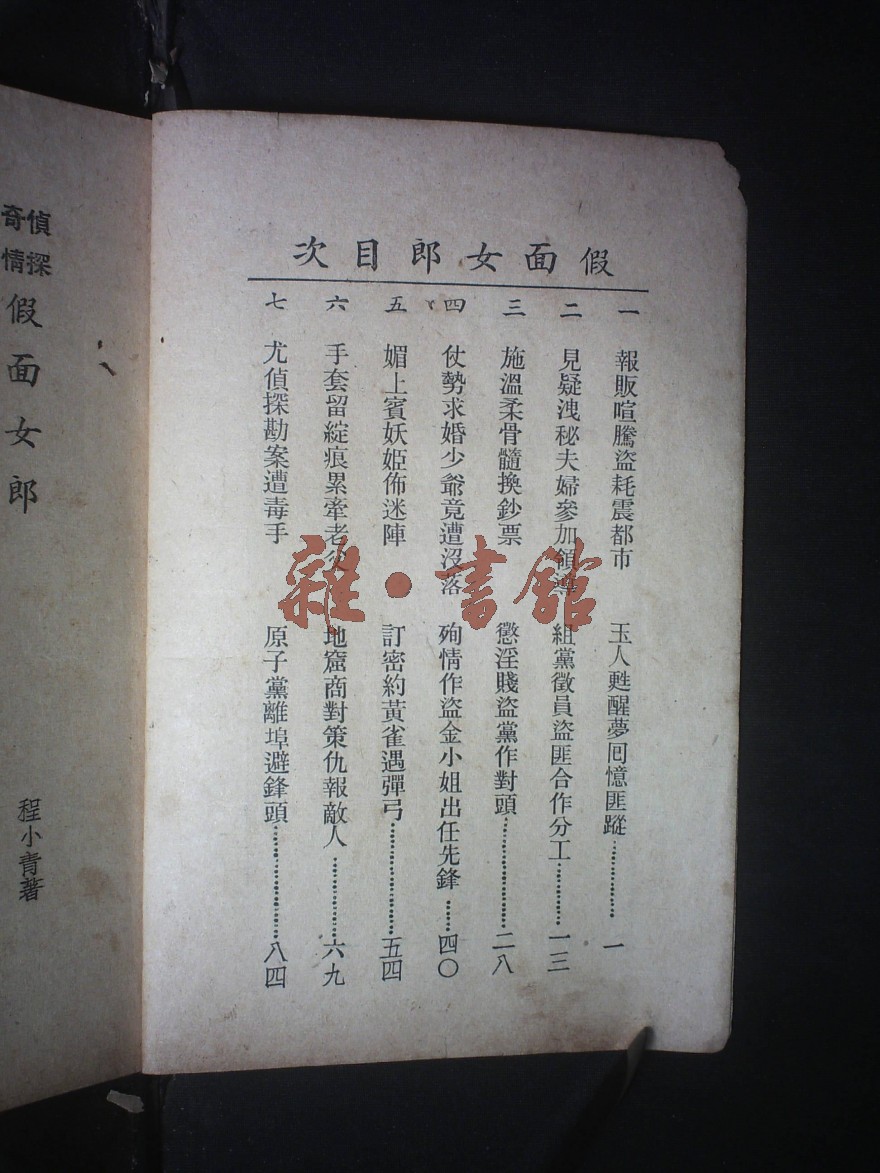 假面女郎目次
一 報販喧騰盜耗震都市 玉人甦醒夢囘憶匪蹤 一
二 見疑洩秘夫婦參加領導 組黨徵員盜匪合作分工 一三
三 施溫柔骨髓換鈔票 懲淫賤盜黨作對頭 二八
四 仗勢求婚少爺竟遭沒落 殉情作盜金小姐出任先鋒 四〇
五 媚上賓妖姬佈迷陣 訂密約黃雀遇彈弓 五四
六 手套留綻痕累牽老 地窟商對策仇報敵人 六九
七 尤偵探勘案遭毒手 原子黨離埠避鋒頭 八四
偵探
奇情
假面女郎
程小青著
雜·書館